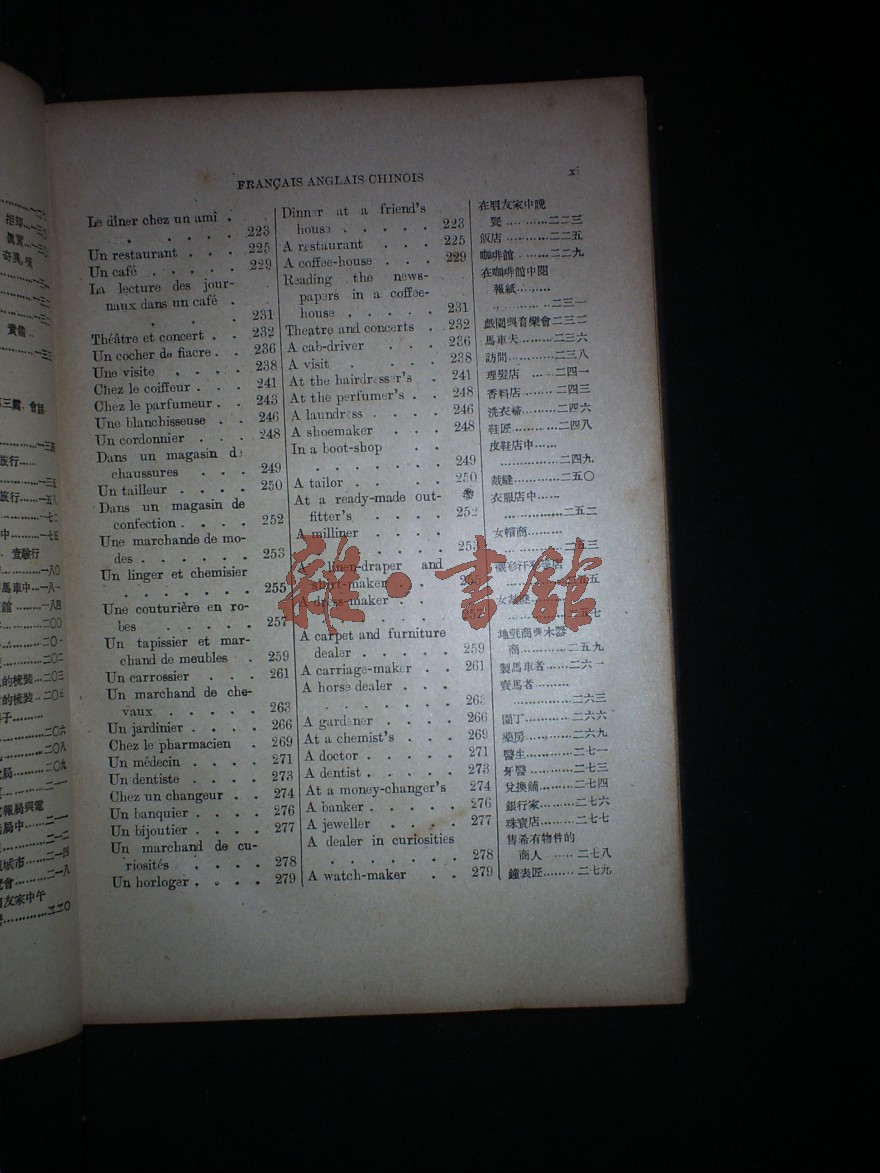 FRANÇAIS ANGLAIS-CHINOIS
xi
Le dîner chez un ami .
. . . . . 223
Un restaurant . . . 225
Un café . . . . . 229
La lecture des jour-
naux dans un café .
. . 231
Théâtre et concert . . 232
Un cocher de fiacre . . 236
Une visite . . . . 238
Chez le coiffeur . . . 241
Chez le parfumeur . . 243
Une blanchisseuse . . 246
Un cordonnier . . . 248
Dans un magasin de
chaussures . . . 249
Un tailleur . . . . 250
Dans un magasin de
confection . . . . 252
Une marchande de mo-
des . . . . . . 253
Un linger et chemisier
. . . . . . 255
Une couturière en ro-
bes . . . . . 257
Un tapissier et mar-
chand de meubles . 259
Un carrossier . . . 261
Un marchand de che-
vaux . . . . . 263
Un jardinier . . . . 266
Chez le pharmacien . 269
Un médecin . . . . 271
Un dentiste . . . . 273
Chez un changeur . . 274
Un banquier . . . . 276
Un bijoutier . . . . 277
Un marchand de cu-
riosités . . . . . 278
Un horloger . . . . 279
Dinner at a friend's
house . . . . . 223
A restaurant . . . 225
A coffee-house . . . 229
Reading the news-
papers in a coffee-
house . . . . . 231
Theatre and concerts . 232
A cab-driver . . . 236
A visit . . . . 238
At the hairdresser's . 241
At the perfumer's . . 248
A laundress . . . . 246
A shoemaker . . . 248
In a boot-shop . .
. . . . . . 249
A tailor . . . . . 250
At a ready-made out-
fitter's . . . . 252
A milliner . . .
. . . . . . 253
A linen-draper and
shirt-maker . . . 255
A dress-maker . .
. . . . . . 257
A carpet and furniture
dealer . . . . . 259
A carriage-maker . . 261
A horse dealer . . .
. . . . . . 263
A gardener . . . . 266
At a chemist's . . . 269
A doctor . . . . . 271
A dentist . . . . . 273
At a money-changer's 274
A banker . . . . . 276
A jeweller . . . . 277
A dealer in curiosities
. . . . . . . 278
A watch-maker . . 279
在朋友家中晚
餐 ……………二二三
飯店 …………二二五
咖啡館 ………二二九
在咖啡館中閱
報紙 ………
……………二三一
戲園與音樂會二三二
馬車夫………二三六
訪問…………二三八
理髮店 ……二四一
香料店………二四三
洗衣婦………二四六
鞋匠…………二四八
皮鞋店中……
……………二四九
裁縫…………二五〇
衣服店中……
……………二五二
女帽商………
……………二五三
……………二五五
女裁縫
……………二五七
地氈商與木器
商……………二五九
製馬車者……二六一
賣馬者………
……………二六三
園丁…………二六六
藥房…………二六九
醫生…………二七一
牙醫…………二七三
兌換舖………二七四
銀行家………二七六
珠寶店………二七七
售希有物件的
商人 ………二七八
鐘表匠………二七九
雜·書館